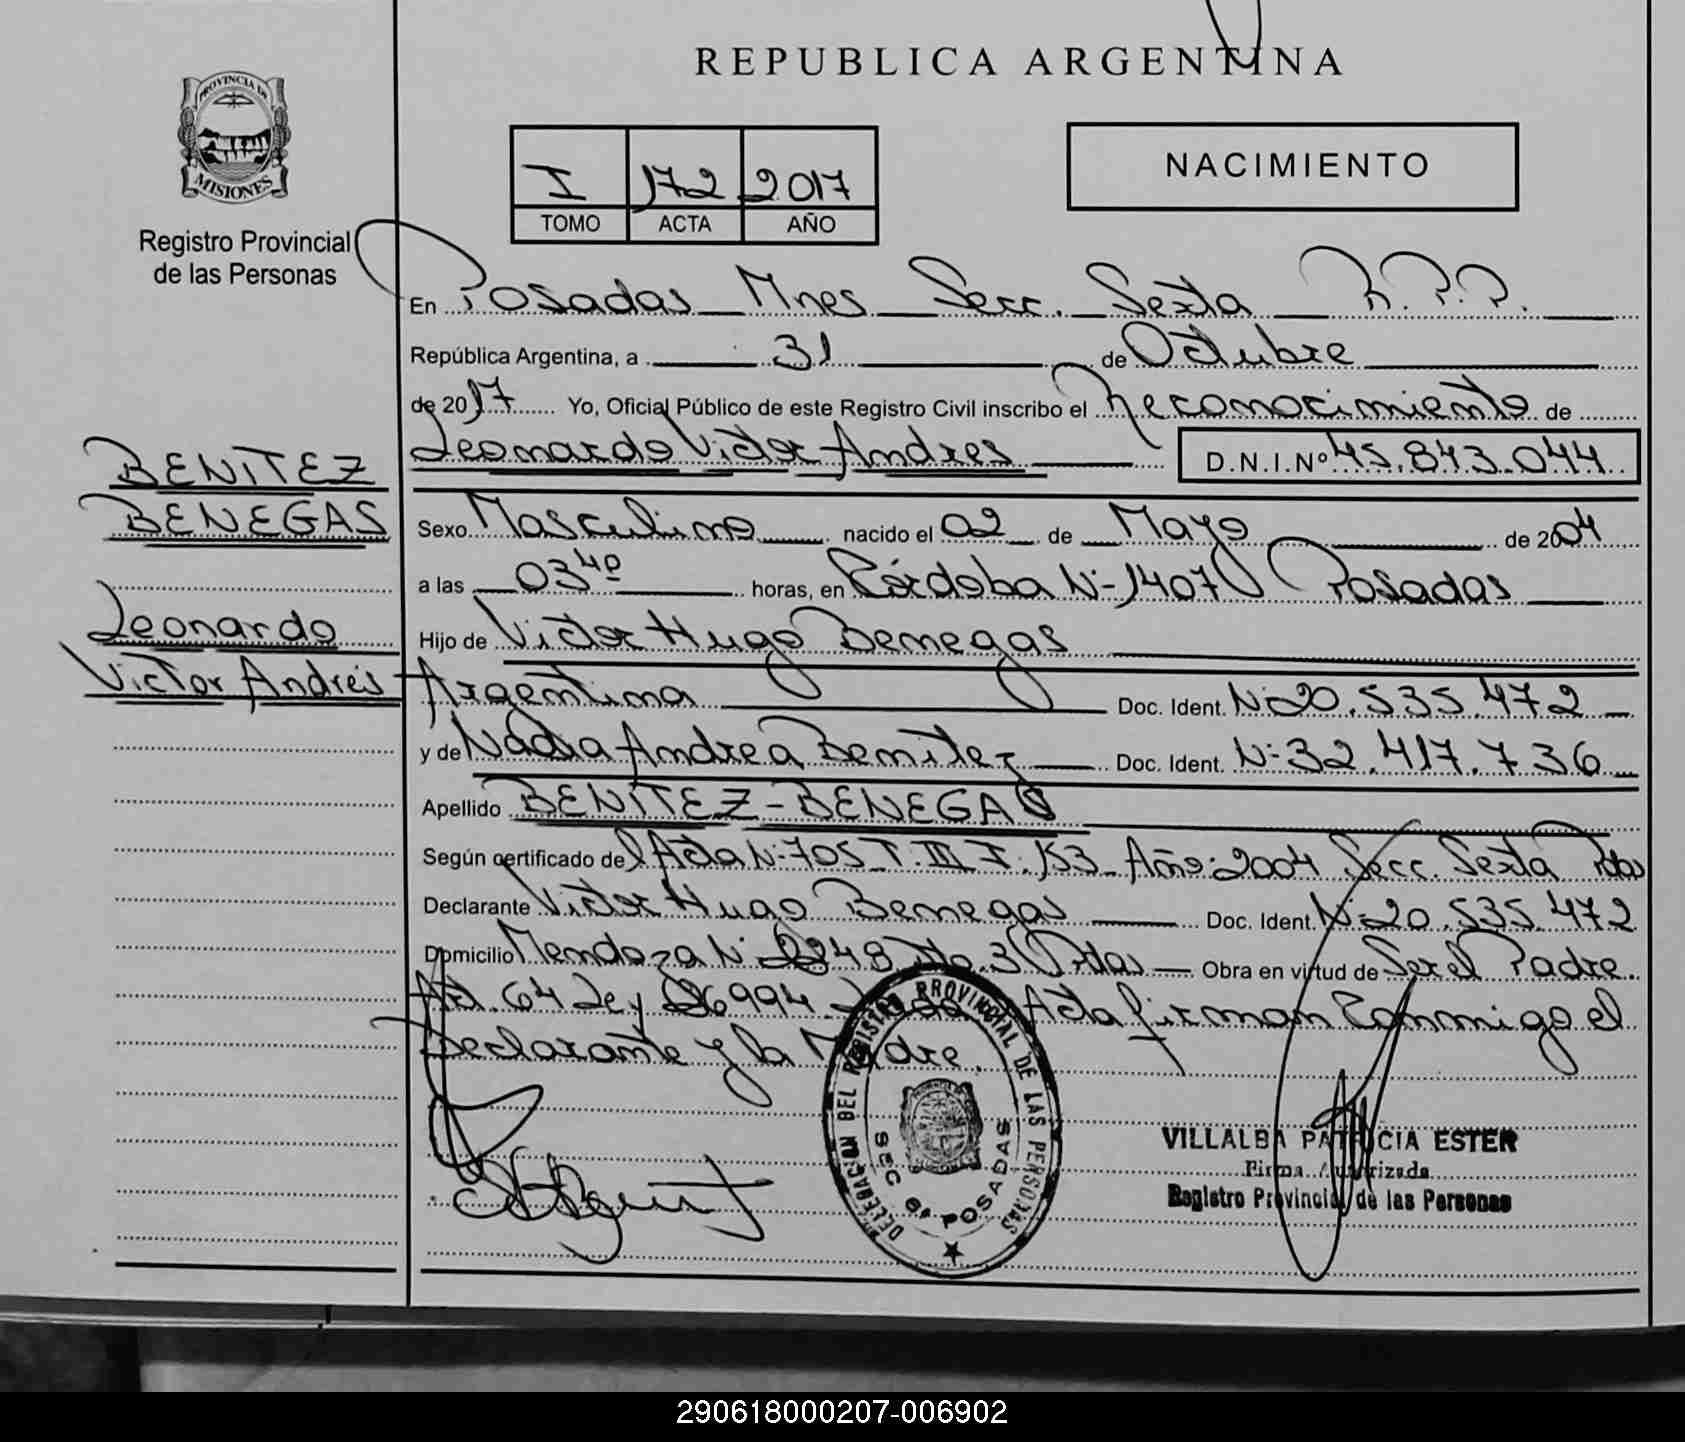 REPUBLICA ARGENTINA
PROVINCIA DE
MISIONES
Registro Provincial
de las Personas
I 172 2017
TOMO ACTA AÑO
NACIMIENTO
BENITEZ
BENEGAS
Leonardo
Victor Andrés
En Posadas Mnes Secc. Sexta R.P.P.
República Argentina, a 31 de Octubre
de 2017 Yo, Oficial Público de este Registro Civil inscribo el Reconocimiento de
Leonardo Victor Andres D.N.I.Nº 45.843.044
Sexo Masculino nacido el 02 de Mayo de 2004
a las 03 40 horas, en Córdoba Nº 1407 Posadas
Hijo de Victor Hugo Benegas
Argentina Doc. Ident. Nº 20.535.472
y de Nadia Andrea Benitez Doc. Ident. Nº 32.417.736
Apellido BENITEZ - BENEGAS
Según certificado del Acta Nº 705 T. III F. 153 Año: 2004 Secc. Sexta Pdas
Declarante Victor Hugo Benegas Doc. Ident. Nº 20.535.472
Domicilio Mendoza Nº 2248 Dto. 3 Pdas Obra en virtud de Ser el Padre.
Art. 64 Ley 26994 Acta firman Conmigo el
Declarante y la Madre.
DELEGACION DEL REGISTRO PROVINCIAL DE LAS PERSONAS
SEC 6ª POSADAS
VILLALBA PATRICIA ESTER
Firma Autorizada
Registro Provincial de las Personas
290618000207-006902